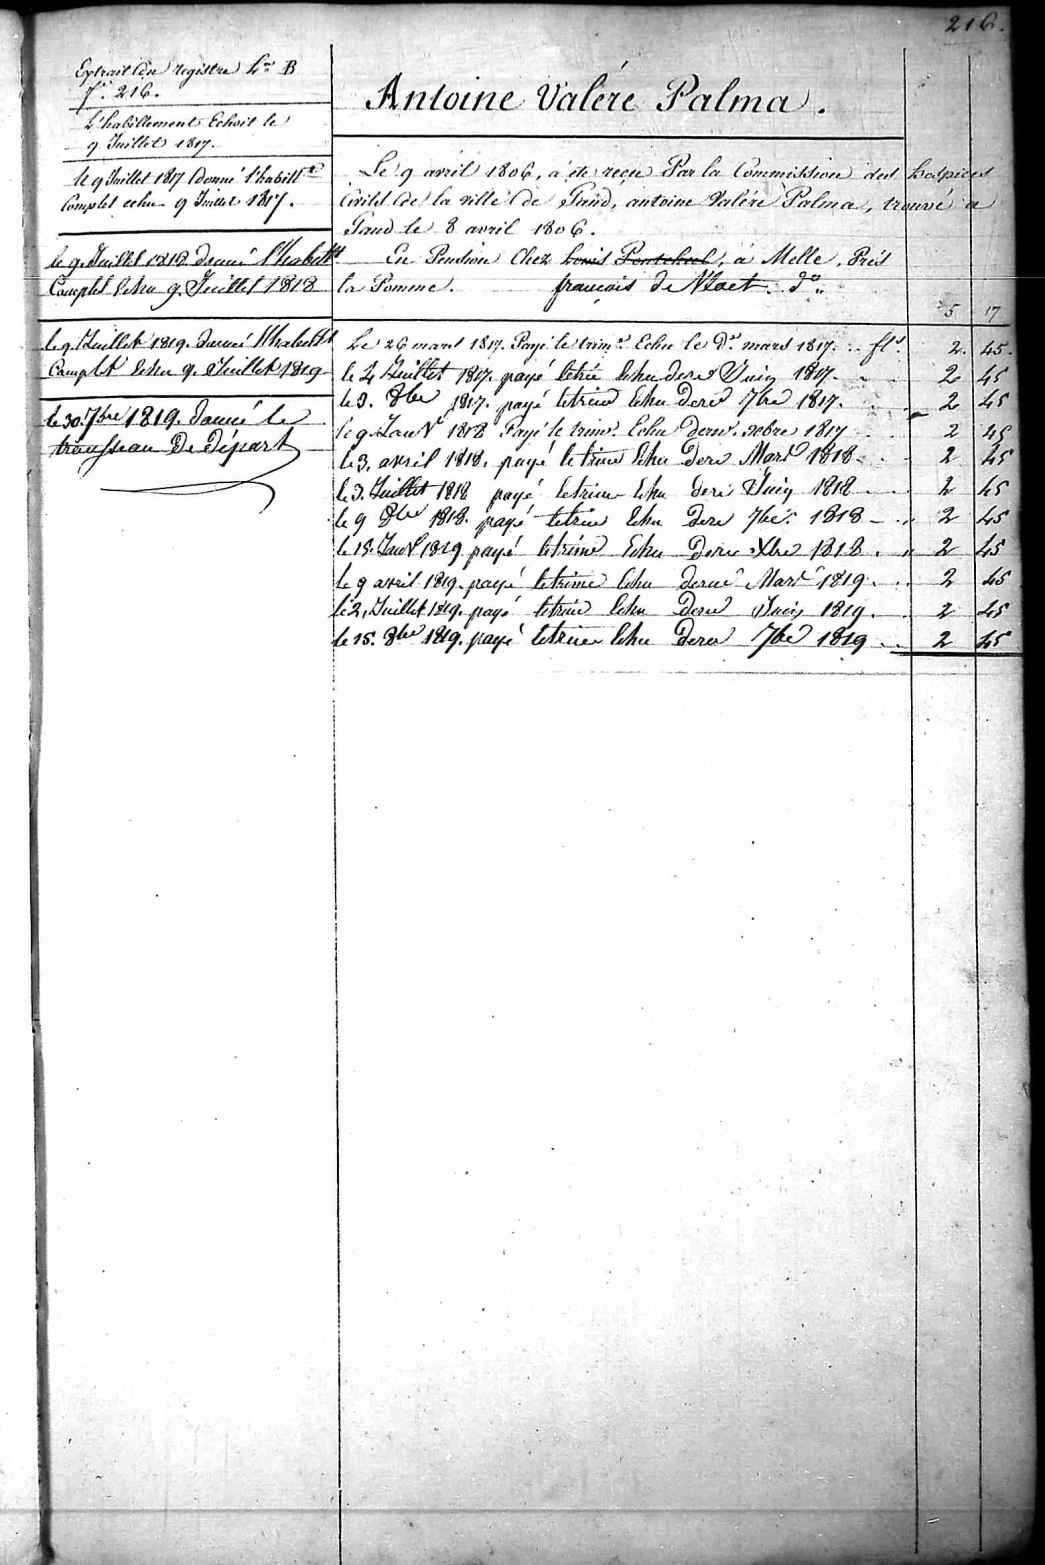 216.
Extrait du registre Lra B
fo. 216.
L'habillement Echoit le
9 Juillet 1817.
le 9 Juillet 1817 donné l'habillt
Complet echu 9 Juillet 1817.
le 9. Juillet 1818 donné l'habillt
Complet Echu 9. Juillet 1818
le 9. Juillet 1819. donné l'habillt
Complet Echu 9. Juillet 1819
le 30. 7bre 1819. donné le
trousseau De Départ
Antoine Valére Palma.
Le 9 avril 1806, a été reçu Par la Commission des hospices
Civils de la ville de Gand, antoine Valére Palma, trouvé a
Gand le 8 avril 1806.
En Pension Chez Louis, à Melle. Près
la Pomme. français de do
5 17
Le 26 mars 1817. Payé le trime Echu le Dr mars 1817. .. fls. 2. 45.
le 4 Juillet 1817. payé letrim Echu derr Juin 1817. 2 45
le 3. 8bre 1817. payé letrim Echu derr 7bre 1817. 2 45
le 9. Janvr 1818 Payé le trimr. Echu dernr. xbre 1817 2 45
le 3. avril 1818. payé le trim Echu derr Mars 1818 2 45
le 3. Juillet 1818 payé letrim Echu derr Juin 1818 2 45
le 9 8bre 1818. payé letrim Echu derr 7bre. 1818 2 45
le 15. Janvr 1819 payé letrime Echu derr Xbre 1818. 2 45
le 9 avril 1819. payé letrime Echu derne Mars 1819. 2 45
le 2. Juillet 1819. payé letrim Echu derr Juin 1819. 2 45
le 15. 8bre 1819. payé letrim Echu derr 7bre 1819 2 45